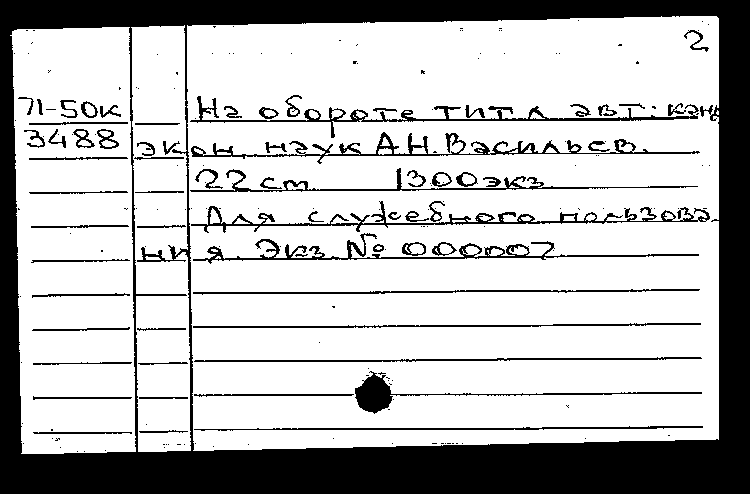 2
71-50к На обороте тит. л авт: канд
3488 экон. наук А.Н. Васильев.
22 cm 1300 экз
Для служебного пользова
ния. Экз. № 000002